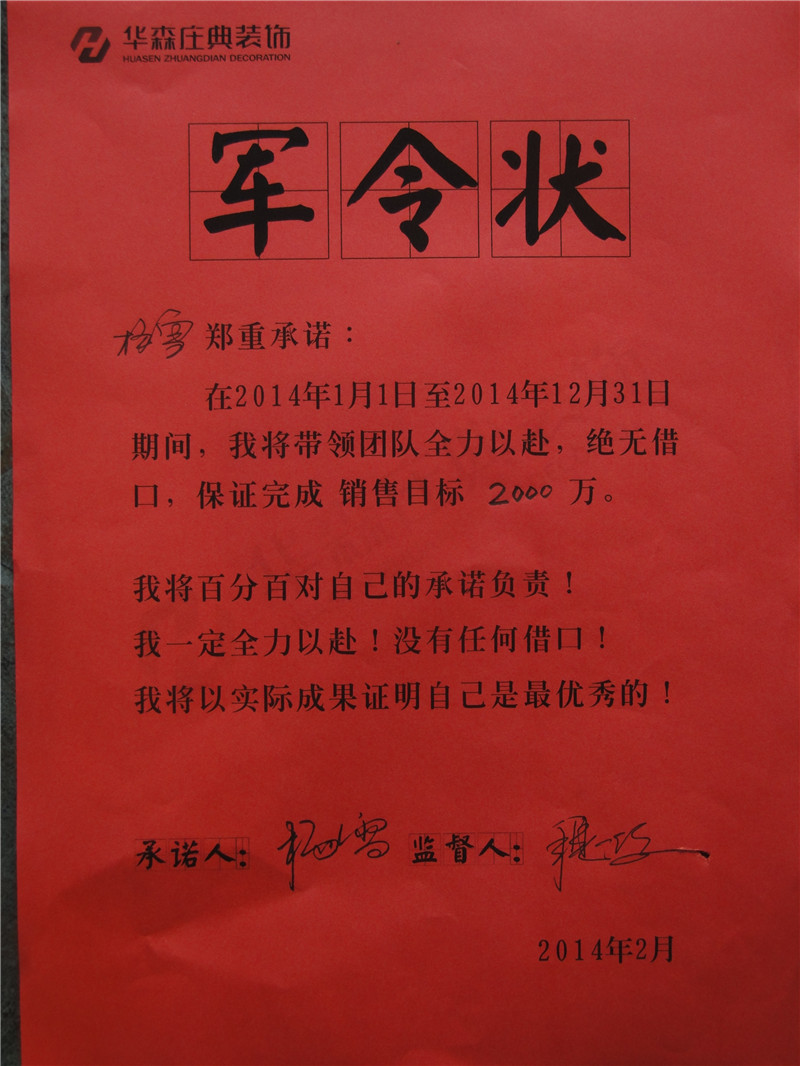 华森庄典装饰
HUASEN ZHUANGDIAN DECORATION
军令状
郑重承诺：
在2014年1月1日至2014年12月31日
期间，我将带领团队全力以赴，绝无借
口，保证完成 销售目标 2000 万。
我将百分百对自己的承诺负责！
我一定全力以赴！没有任何借口！
我将以实际成果证明自己是最优秀的！
承诺人： 监督人：
2014年2月